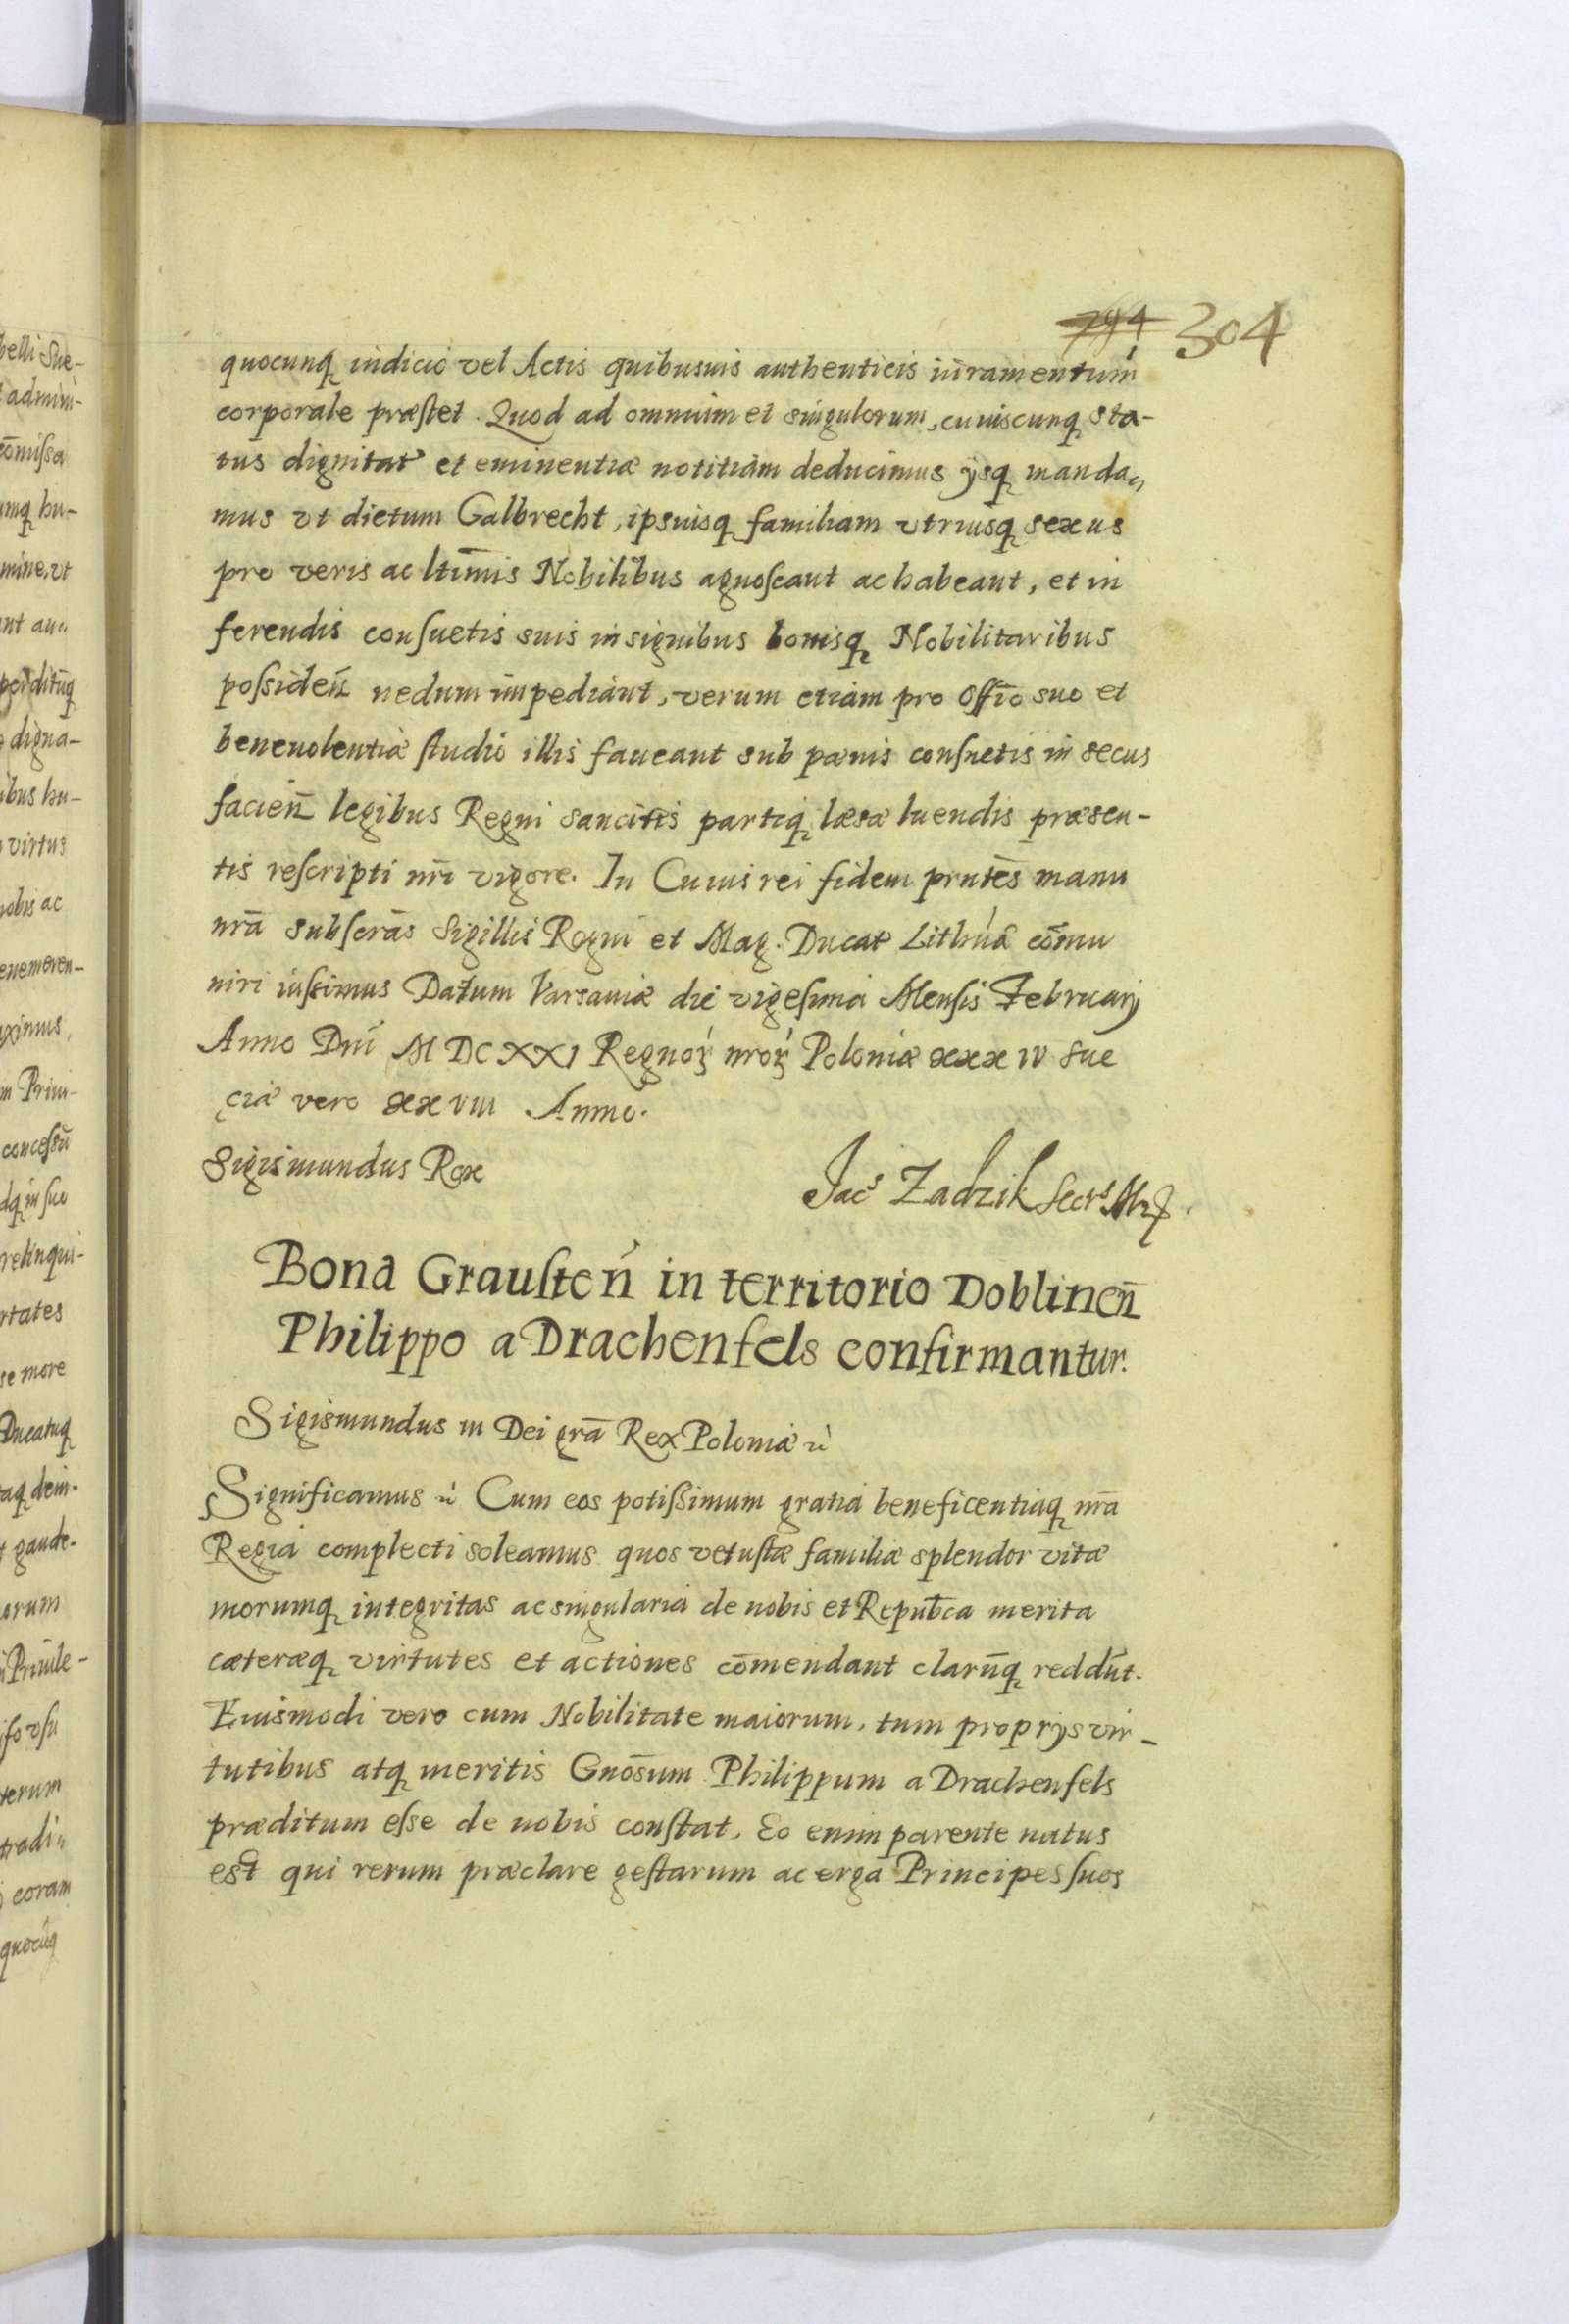 294 304
quocunq indicio vel Actis quibusuis authenticis iuramentum
corporale præstet. Quod ad omnium et singulorum, cuiuscunq sta-
tus dignitat et eminentiæ notitiam deducimus ijsq manda„
mus vt dictum Galbrecht, ipsiusq familiam vtriusq sexus
pro veris ac ltīmis Nobilibus agnoscant ac habeant, et in
ferendis consuetis suis insignibus bonisq Nobilitaribus
possideñ nedum impediant, verum etiam pro offīo suo et
beneuolentiæ studio illis faueant sub pænis consuetis in secus
facieñ legibus Regni sancitis partiq læsæ luendis præsen-
tis rescripti nrī vigore. In Cuius rei fidem pntēs manu
nrā subscrās Sigillis Regni et Mag. Ducat Lithuā cōmu
niri iussimus Datum Varsauiæ die vigesima Mensis Februarij
Anno Dnī MDCXXI Regnoꝝ nroꝝ Poloniæ xxxiv Sue
ciæ vero xxviii Anno.
Sigismundus Rex
Jacs Zadzik Secrs Mrz.
Bona Grausteñ in territorio Doblineñ
Philippo a Drachenfels confirmantur.
Sigismundus III Dei grā Rex Poloniæ &
Significamus & Cum eos potissimum gratia beneficentiaq nrā
Regia complecti soleamus quos vetustæ familiæ splendor vitæ
morumq integritas ac singularia de nobis et Repub̄ca merita
cæteræq virtutes et actiones cōmendant clarūq reddūt.
Eiusmodi vero cum Nobilitate maiorum, tum proprijs vir-
tutibus atq meritis Gnōsum Philippum a Drachenfels
præditum esse de nobis constat. Eo enim parente natus
est qui rerum præclare gestarum ac erga Principes suos